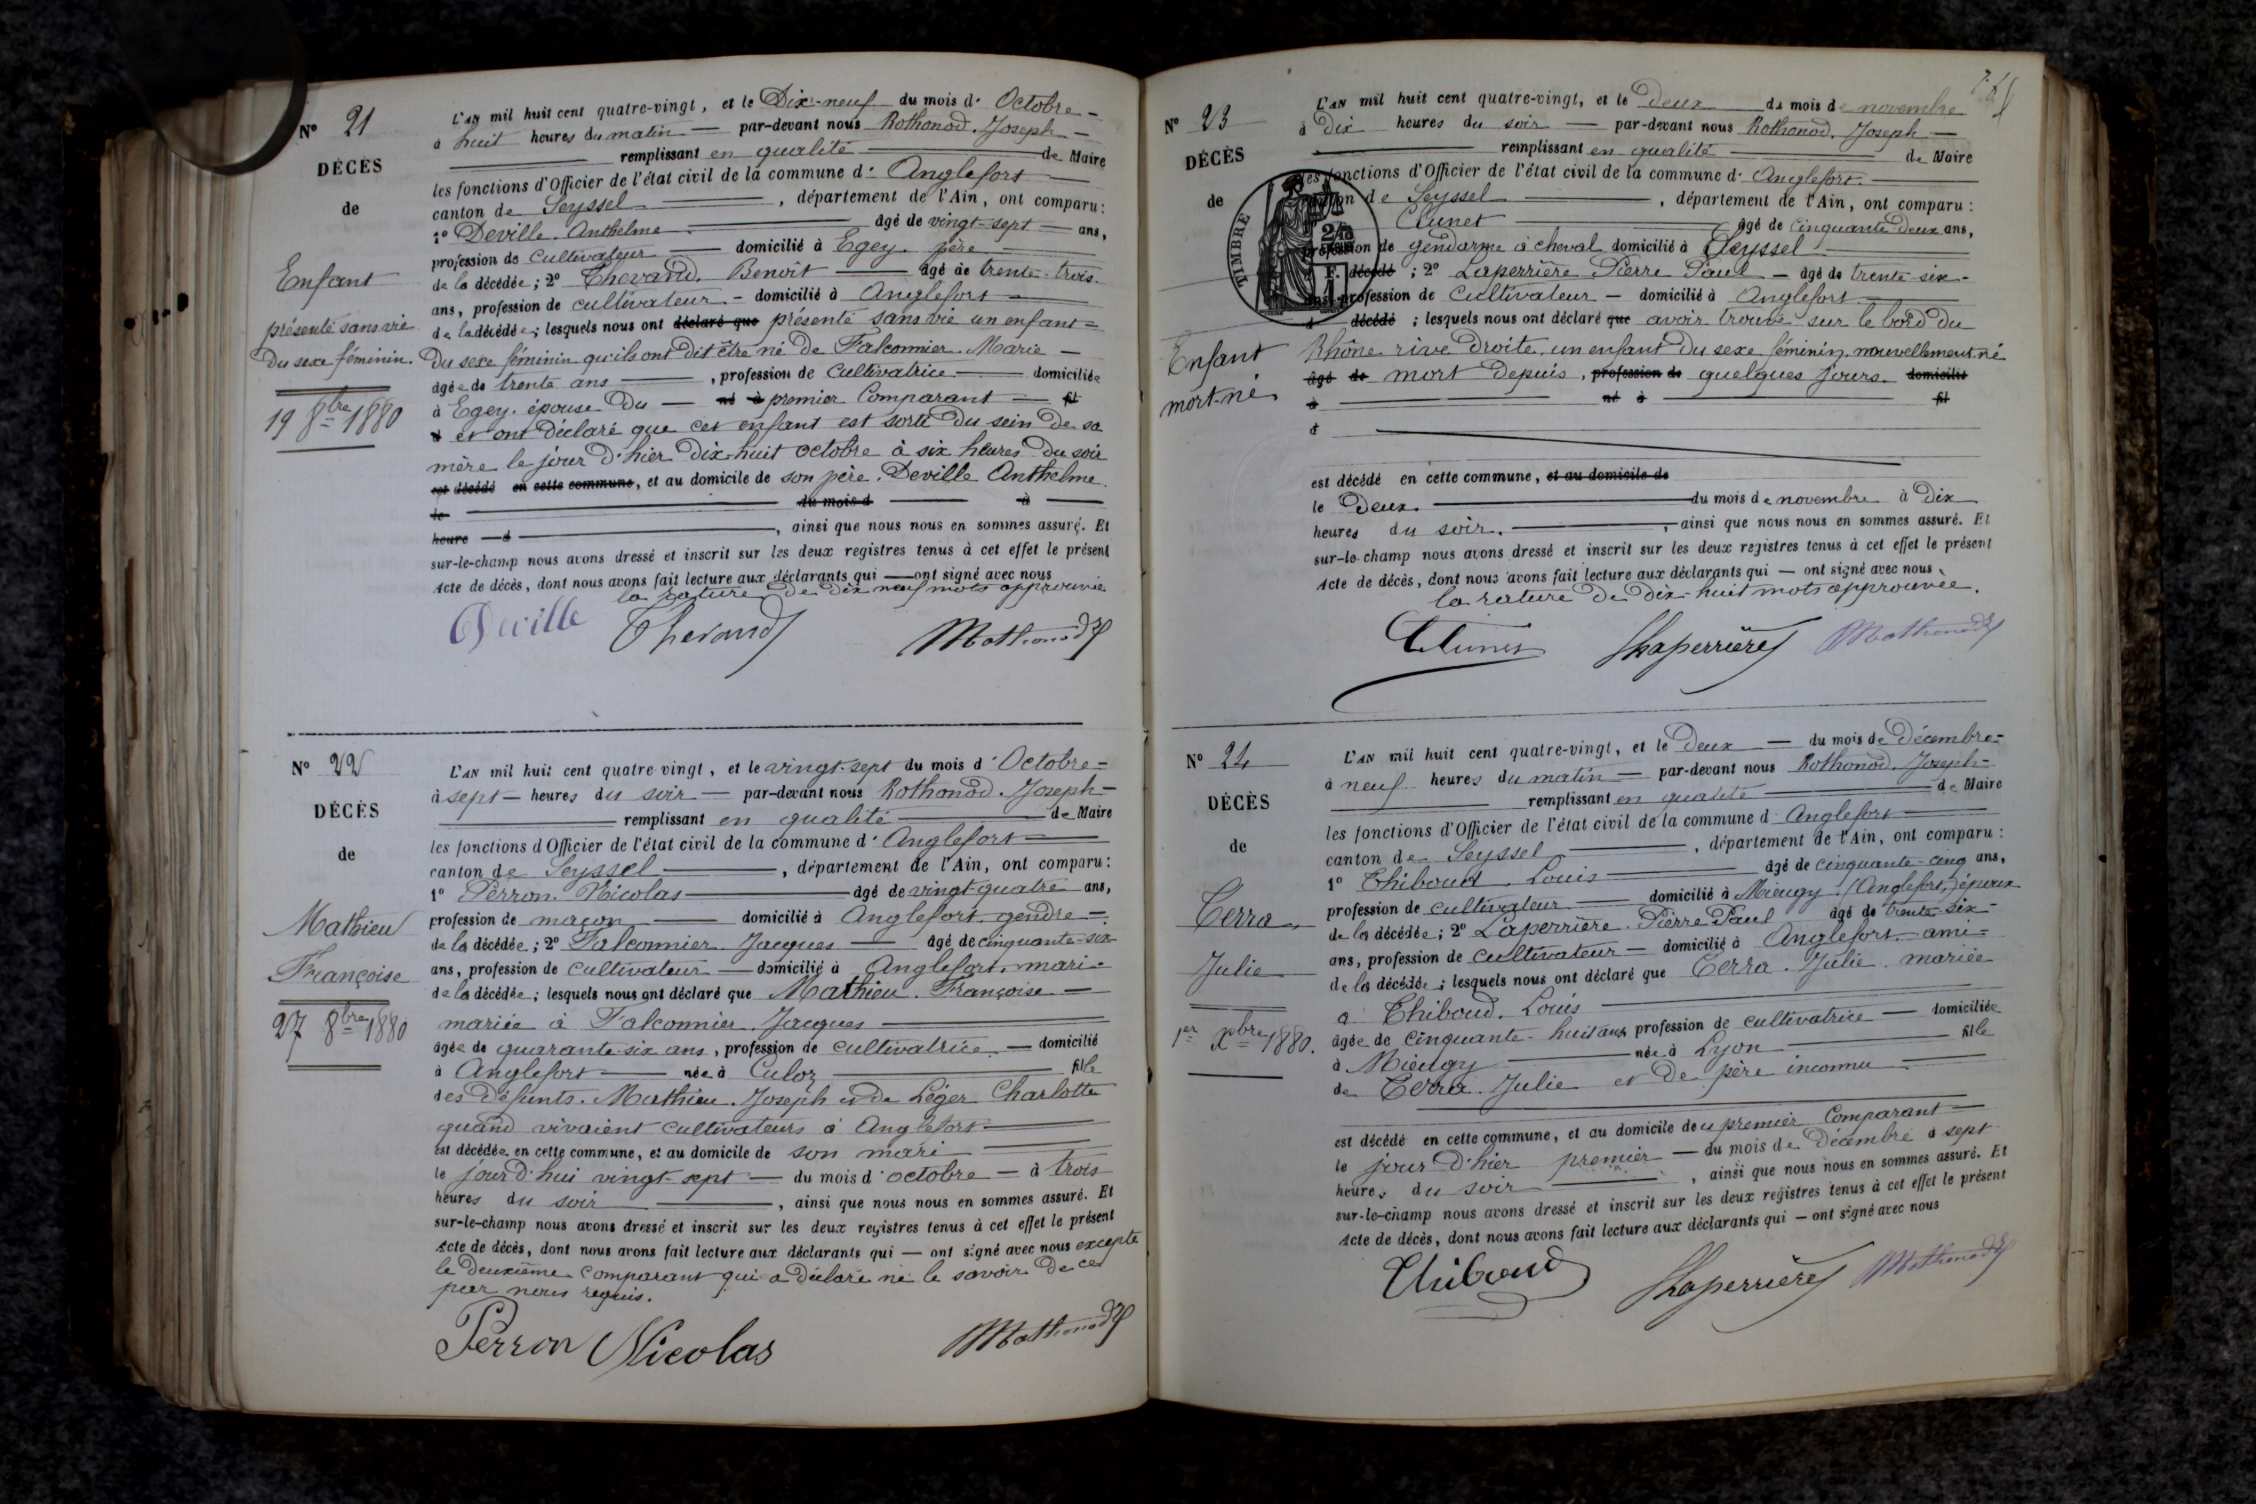 N° 21
DÉCÈS
de
Enfant
présenté sans vie
du sexe féminin.
19 8bre 1880
L'AN mil huit cent quatre-vingt, et le Dix-neuf du mois d' Octobre
à huit heures du matin par-devant nous Rothonod. Joseph
remplissant en qualité de Maire
les fonctions d'Officier de l'état civil de la commune d' Anglefort
canton de Seyssel, département de l'Ain, ont comparu:
1° Deville. Anthelme âgé de vingt-sept ans,
profession de cultivateur domicilié à Egey. père
de la décédée; 2° Chevand. Benoit âgé de trente-trois
ans, profession de cultivateur - domicilié à Anglefort
de la décédée; lesquels nous ont déclaré que présenté sans vie un enfant
du sexe féminin qu'ils ont dit être né de Falconnier. Marie
âgée de trente ans, profession de Cultivatrice domiciliée
à Egey. épouse du né à premier Comparant fil
d et ont déclaré que cet enfant est sorti du sein de sa
mère le jour d'hier dix-huit octobre à six heures du soir
est décédé en cette commune, et au domicile de son père. Deville Anthelme.
le du mois d à
heure d, ainsi que nous nous en sommes assuré. Et
sur-le-champ nous avons dressé et inscrit sur les deux registres tenus à cet effet le présent
Acte de décès, dont nous avons fait lecture aux déclarants qui ont signé avec nous
la rature de dix neuf mots approuvée
Deville Chevand Rothonod
N° 22
DÉCÈS
de
Mathieu
Françoise
27 8bre 1880
L'AN mil huit cent quatre vingt, et le vingt-sept du mois d' Octobre
à sept heures du soir par-devant nous Rothonod. Joseph
remplissant en qualité de Maire
les fonctions d'Officier de l'état civil de la commune d' Anglefort
canton de Seyssel, département de l'Ain, ont comparu:
1° Perron. Nicolas âgé de vingt-quatre ans,
profession de maçon domicilié à Anglefort. gendre
de la décédée; 2° Falconnier Jacques âgé de cinquante-six
ans, profession de cultivateur domicilié à Anglefort. mari
de la décédée; lesquels nous ont déclaré que Mathieu. Françoise
mariée à Falconnier. Jacques
âgée de quarante-six ans, profession de cultivatrice. domicilié
à Anglefort née à Culoz fille
des défunts. Mathieu. Joseph et de Léger Charlotte
quand vivaient cultivateurs à Anglefort
est décédée en cette commune, et au domicile de son mari
le jourd'hui vingt-sept du mois d' octobre à trois
heures du soir, ainsi que nous nous en sommes assuré. Et
sur-le-champ nous avons dressé et inscrit sur les deux registres tenus à cet effet le présent
Acte de décès, dont nous avons fait lecture aux déclarants qui ont signé avec nous excepté
le deuxième comparant qui a déclaré ne le savoir de ce
par nous requis.
Perron Nicolas Rothonod
N° 23
DÉCÈS
de
Enfant
mort-né
L'AN mil huit cent quatre-vingt, et le deux du mois de novembre
à dix heures du soir par-devant nous Rothonod. Joseph
remplissant en qualité de Maire
les fonctions d'Officier de l'état civil de la commune d' Anglefort.
canton de Seyssel, département de l'Ain, ont comparu:
Clunet âgé de Cinquante deux ans,
profession de gendarme à cheval domicilié à Seyssel
décédé; 2° Laperrière Pierre Paul - âgé de trente-six
ans, profession de Cultivateur domicilié à Anglefort
d décédé; lesquels nous ont déclaré que avoir trouvé sur le bord du
Rhône rive droite, un enfant du sexe féminin nouvellement né
âgé de mort depuis, profession de quelques jours. domicilié
à né à fil
d
est décédé en cette commune, et au domicile de
le Deux du mois de novembre à dix
heures du soir., ainsi que nous nous en sommes assuré. Et
sur-le-champ nous avons dressé et inscrit sur les deux registres tenus à cet effet le présent
Acte de décès, dont nous avons fait lecture aux déclarants qui ont signé avec nous.
la rature de dix-huit mots approuvée.
Clunet Laperrière Rothonod
TIMBRE
N° 24
DÉCÈS
de
Cerra
Julie
1er Xbre 1880.
L'AN mil huit cent quatre-vingt, et le deux du mois de décembre
à neuf heures du matin par-devant nous Rothonod. Joseph
remplissant en qualité de Maire
les fonctions d'Officier de l'état civil de la commune d' Anglefort
canton de Seyssel, département de l'Ain, ont comparu:
1° Thiboud. Louis âgé de cinquante-cinq ans,
profession de cultivateur domicilié à Mieugy (Anglefort,) époux
de la décédée; 2° Laperrière. Pierre Paul âgé de trente-six
ans, profession de cultivateur domicilié à Anglefort. ami
de la décédée; lesquels nous ont déclaré que Cerra. Julie. mariée
à Thiboud. Louis
âgée de Cinquante-huit ans, profession de cultivatrice domiciliée
à Mieugy née à Lyon fille
de Cerra. Julie et de père inconnu
est décédé en cette commune, et au domicile deu premier Comparant
le jour d'hier premier du mois de Décembre à sept
heures du soir, ainsi que nous nous en sommes assuré. Et
sur-le-champ nous avons dressé et inscrit sur les deux registres tenus à cet effet le présent
Acte de décès, dont nous avons fait lecture aux déclarants qui ont signé avec nous
Thiboud Laperrière Rothonod